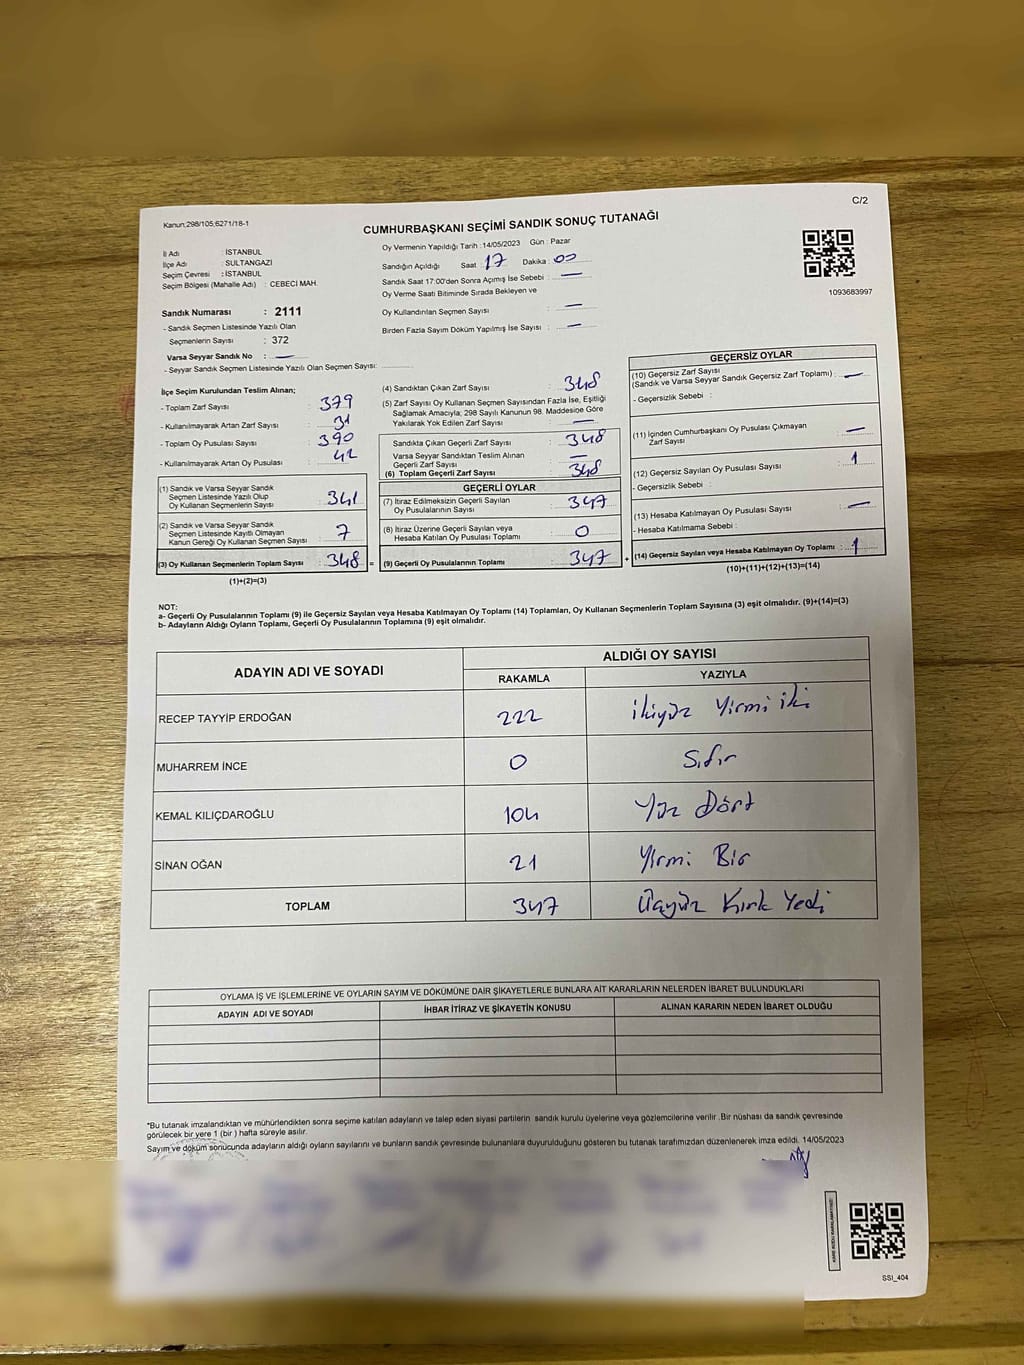 Kanun;298/105;6271/18-1
C/2
CUMHURBAŞKANI SEÇİMİ SANDIK SONUÇ TUTANAĞI
İl Adı : İSTANBUL
İlçe Adı : SULTANGAZİ
Seçim Çevresi : İSTANBUL
Seçim Bölgesi (Mahalle Adı) : CEBECİ MAH.
Sandık Numarası : 2111
- Sandık Seçmen Listesinde Yazılı Olan
Seçmenlerin Sayısı : 372
Varsa Seyyar Sandık No : —
- Seyyar Sandık Seçmen Listesinde Yazılı Olan Seçmen Sayısı:
Oy Vermenin Yapıldığı Tarih :14/05/2023 Gün : Pazar
Sandığın Açıldığı Saat : 17 Dakika : 00
Sandık Saat 17:00'den Sonra Açımış İse Sebebi : —
Oy Verme Saati Bitiminde Sırada Bekleyen ve
Oy Kullandırılan Seçmen Sayısı : —
Birden Fazla Sayım Döküm Yapılmış İse Sayısı : —
1093683997
İlçe Seçim Kurulundan Teslim Alınan;
- Toplam Zarf Sayısı : 379
- Kullanılmayarak Artan Zarf Sayısı : 31
- Toplam Oy Pusulası Sayısı : 390
- Kullanılmayarak Artan Oy Pusulası : 42
(1) Sandık ve Varsa Seyyar Sandık
Seçmen Listesinde Yazılı Olup
Oy Kullanan Seçmenlerin Sayısı : 341
(2) Sandık ve Varsa Seyyar Sandık
Seçmen Listesinde Kayıtlı Olmayan
Kanun Gereği Oy Kullanan Seçmen Sayısı : 7
(3) Oy Kullanan Seçmenlerin Toplam Sayısı : 348 =
(1)+(2)=(3)
(4) Sandıktan Çıkan Zarf Sayısı : 348
(5) Zarf Sayısı Oy Kullanan Seçmen Sayısından Fazla İse, Eşitliği
Sağlamak Amacıyla; 298 Sayılı Kanunun 98. Maddesine Göre
Yakılarak Yok Edilen Zarf Sayısı : —
Sandıkta Çıkan Geçerli Zarf Sayısı : 348
Varsa Seyyar Sandıktan Teslim Alınan
Geçerli Zarf Sayısı : —
(6) Toplam Geçerli Zarf Sayısı : 348
GEÇERLİ OYLAR
(7) İtiraz Edilmeksizin Geçerli Sayılan
Oy Pusulalarının Sayısı : 347
(8) İtiraz Üzerine Geçerli Sayılan veya
Hesaba Katılan Oy Pusulası Toplamı : 0
(9) Geçerli Oy Pusulalarının Toplamı : 347 +
GEÇERSİZ OYLAR
(10) Geçersiz Zarf Sayısı
(Sandık ve Varsa Seyyar Sandık Geçersiz Zarf Toplamı) : —
- Geçersizlik Sebebi :
(11) İçinden Cumhurbaşkanı Oy Pusulası Çıkmayan
Zarf Sayısı : —
(12) Geçersiz Sayılan Oy Pusulası Sayısı : 1
- Geçersizlik Sebebi :
(13) Hesaba Katılmayan Oy Pusulası Sayısı : —
- Hesaba Katılmama Sebebi :
(14) Geçersiz Sayılan veya Hesaba Katılmayan Oy Toplamı : 1
(10)+(11)+(12)+(13)=(14)
NOT:
a- Geçerli Oy Pusulalarının Toplamı (9) ile Geçersiz Sayılan veya Hesaba Katılmayan Oy Toplamı (14) Toplamları, Oy Kullanan Seçmenlerin Toplam Sayısına (3) eşit olmalıdır. (9)+(14)=(3)
b- Adayların Aldığı Oyların Toplamı, Geçerli Oy Pusulalarının Toplamına (9) eşit olmalıdır.
ADAYIN ADI VE SOYADI ALDIĞI OY SAYISI
RAKAMLA YAZIYLA
RECEP TAYYİP ERDOĞAN 222 ikiyüz Yirmi iki
MUHARREM İNCE 0 Sıfır
KEMAL KILIÇDAROĞLU 104 Yüz Dört
SİNAN OĞAN 21 Yirmi Bir
TOPLAM 347 Üçyüz Kırk Yedi
OYLAMA İŞ VE İŞLEMLERİNE VE OYLARIN SAYIM VE DÖKÜMÜNE DAİR ŞİKAYETLERLE BUNLARA AİT KARARLARIN NELERDEN İBARET BULUNDUKLARI
ADAYIN ADI VE SOYADI İHBAR İTİRAZ VE ŞİKAYETİN KONUSU ALINAN KARARIN NEDEN İBARET OLDUĞU
*Bu tutanak imzalandıktan ve mühürlendikten sonra seçime katılan adayların ve talep eden siyasi partilerin sandık kurulu üyelerine veya gözlemcilerine verilir .Bir nüshası da sandık çevresinde
görülecek bir yere 1 (bir ) hafta süreyle asılır.
Sayım ve döküm sonucunda adayların aldığı oyların sayılarını ve bunların sandık çevresinde bulunanlara duyurulduğunu gösteren bu tutanak tarafımızdan düzenlenerek imza edildi. 14/05/2023
SSI_404